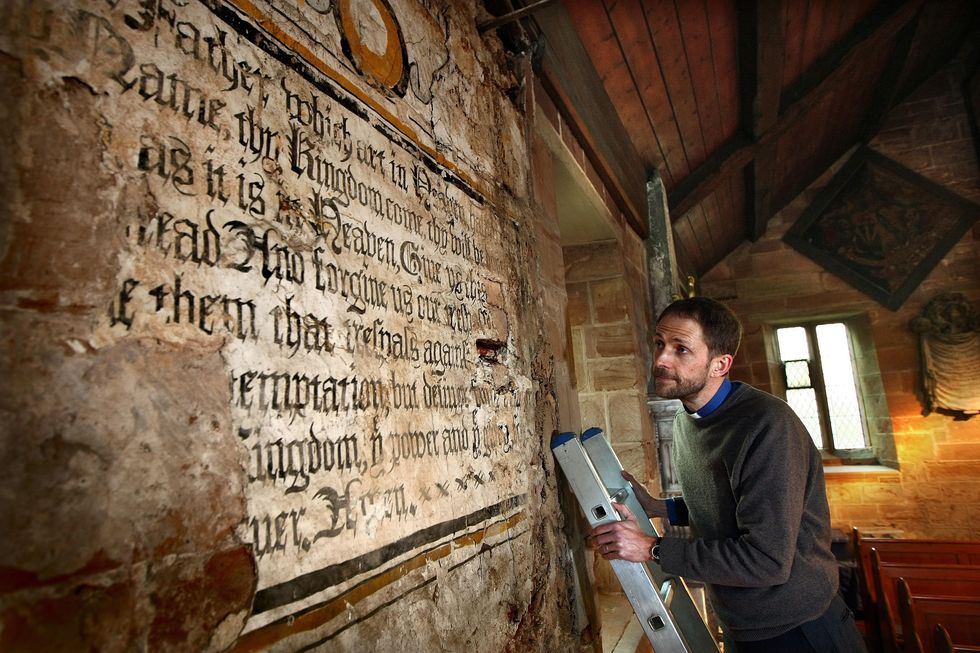 Father, which art in Heaven,
Name, thy Kingdom come, thy will be
as it is in Heaven, Giue vs this
And forgiue vs our
them that trespas agaynst
temptation, but deliuer
kingdom, yͤ power and yͤ
euer, Amen.